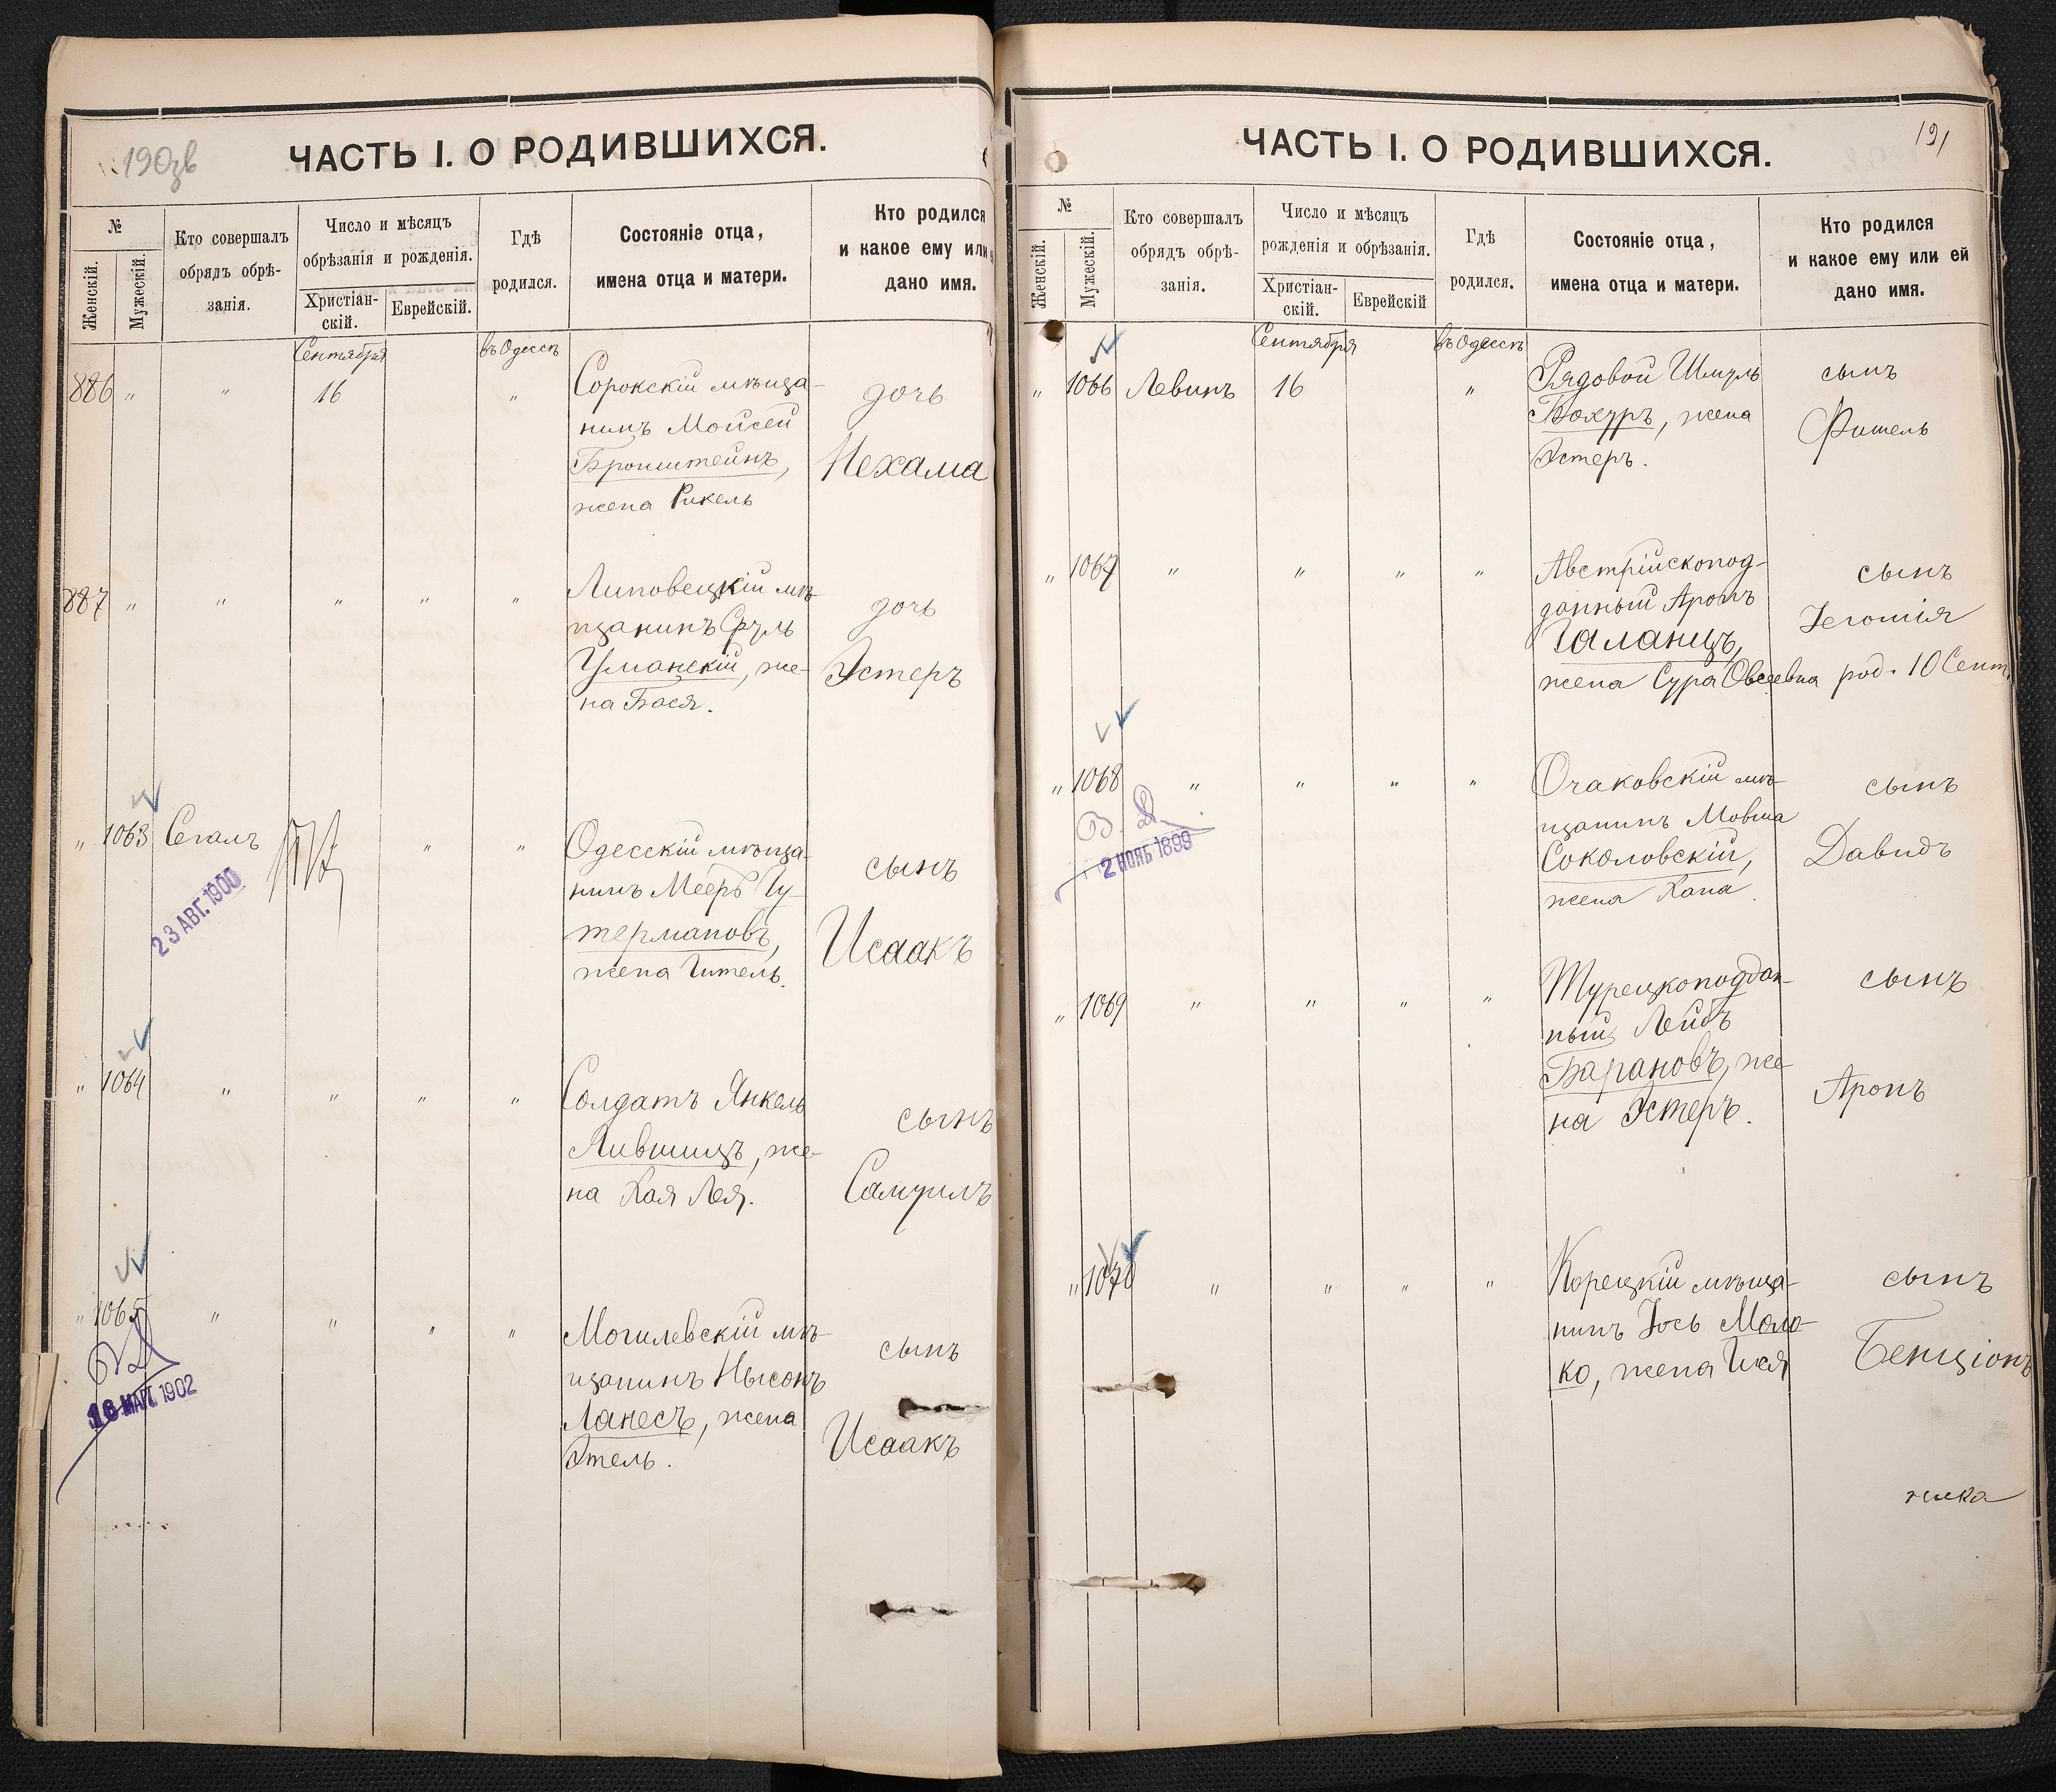 190зв
ЧАСТЬ I. О РОДИВШИХСЯ.
№
Женскій.
Мужескій.
Кто совершалъ
обрядъ обрѣ-
занія.
Число и мѣсяцъ
обрѣзанія и рожденія.
Христіан-
скій.
Еврейскій.
Гдѣ
родился.
Состояніе отца,
имена отца и матери.
Кто родился
и какое ему или
дано имя.
Сентября
въ Одессѣ
886 " " 16 "
Сорокскій мѣща-
нинъ Мойсей
Бронштейнъ,
жена Рикель
дочь
Нехама
887 " " " " "
Липовецкій мѣ-
щанинъ Сруль
Уманскій, же-
на Бася.
дочь
Эстеръ
" 1063 Сегалъ " "
23 АВГ. 1900
Одесскій мѣща-
нинъ Мееръ Гу-
термановъ,
жена Гитель.
сынъ
Исаакъ
" 1064 " " " "
Солдатъ Янкель
Лившицъ, же-
на Хая Лея.
сынъ
Самуилъ
" 1065 " " " "
16 МАР. 1902
Могилевскій мѣ-
щанинъ Нысонъ
Ланесъ, жена
Этель.
сынъ
Исаакъ
191
ЧАСТЬ I. О РОДИВШИХСЯ.
№
Женскій.
Мужескій.
Кто совершалъ
обрядъ обрѣ-
занія.
Число и мѣсяцъ
рожденія и обрѣзанія.
Христіан-
скій.
Еврейскій
Гдѣ
родился.
Состояніе отца,
имена отца и матери.
Кто родился
и какое ему или ей
дано имя.
Сентября
въ Одессѣ
" 1066 Левинъ 16 "
Рядовой Шмуль
Бохуръ, жена
Эстеръ.
сынъ
Фишель
" 1067 " " " "
Австрійскопод-
данный Аронъ
Галанцъ,
жена Сура Овсеевна
сынъ
род. 10 Сент.
" 1068 " " " "
2 НОЯБ 1899
Очаковскій мѣ-
щанинъ Мовша
Соколовскій,
жена Хана.
сынъ
Давидъ
" 1069 " " " "
Турецкоподдан-
ный Лейбъ
Барановъ, же-
на Эстеръ.
сынъ
Аронъ
" 1070 " " " "
Корецкій мѣща-
нинъ Іось Моло-
ко, жена
сынъ
Бенціонъ